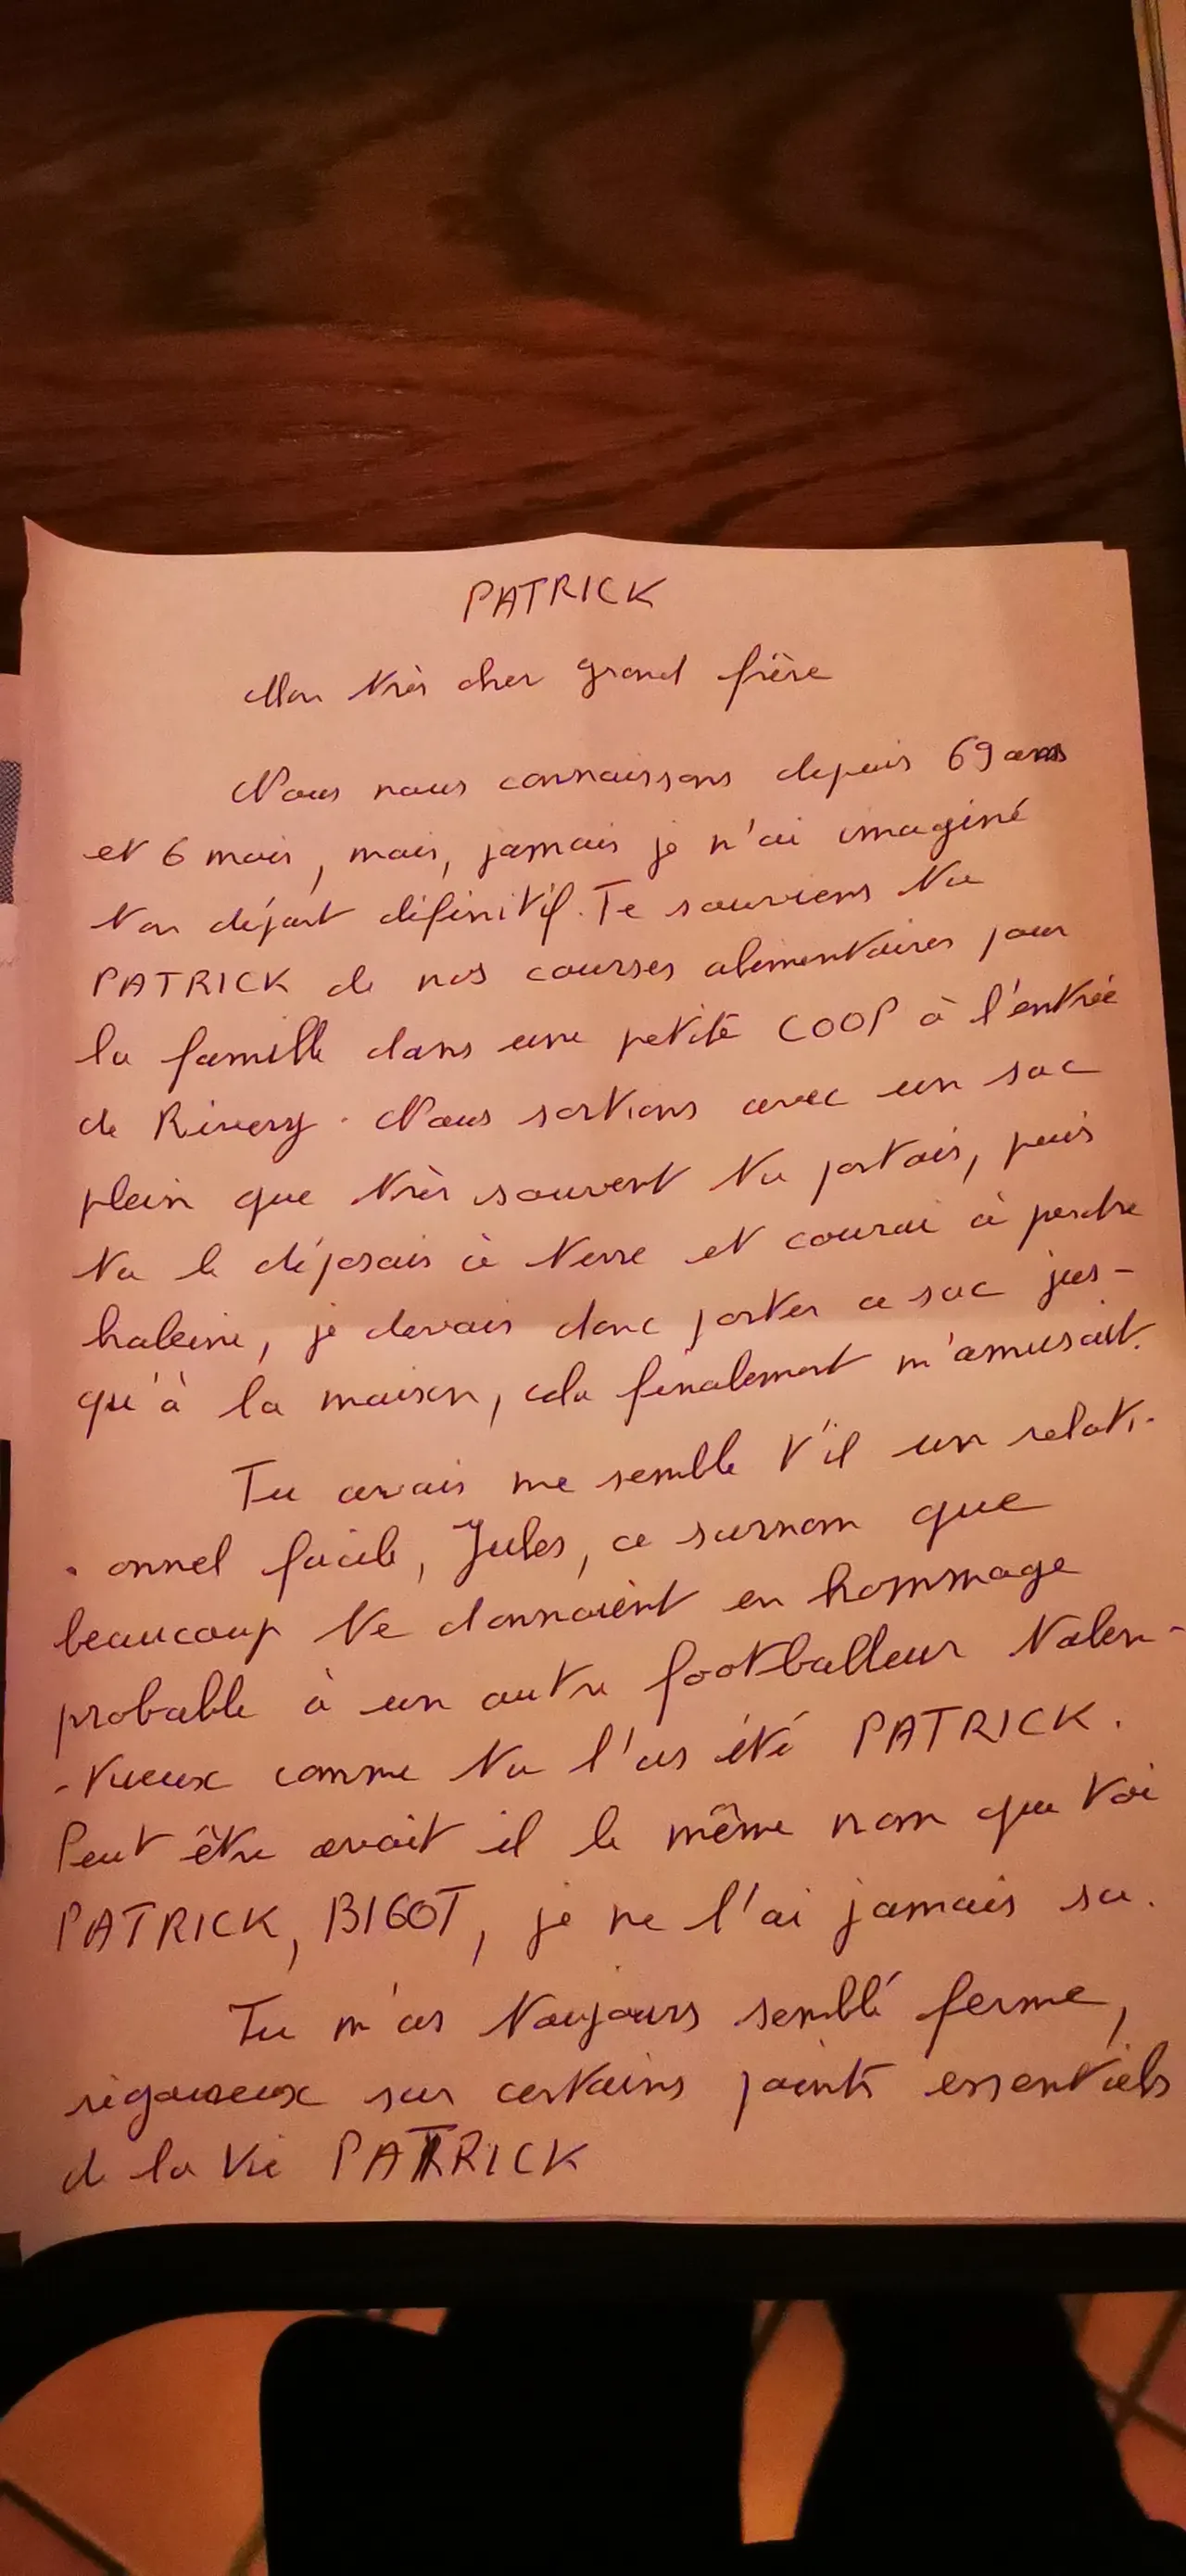 PATRICK
Mon très cher grand frère
Nous nous connaissons depuis 69 ans
et 6 mois, mais, jamais je n'ai imaginé
ton départ définitif. Te souviens tu
PATRICK de nos courses alimentaires pour
la famille dans une petite COOP à l'entrée
de Rivery. Nous sortions avec un sac
plein que très souvent tu portais, puis
tu le déposais à terre et courai à perdre
haleine, je devais donc porter ce sac jus-
qu'à la maison, cela finalement m'amusait.
Tu avais me semble t'il un relati-
-onnel facile, Jules, ce surnom que
beaucoup te donnaient en hommage
probable à un autre footballeur talen-
-tueux comme tu l'as été PATRICK.
Peut être avait il le même nom que toi
PATRICK, BIGOT, je ne l'ai jamais su.
Tu m'as toujours semblé ferme,
rigoureux sur certains points essentiels
de la vie PATRICK